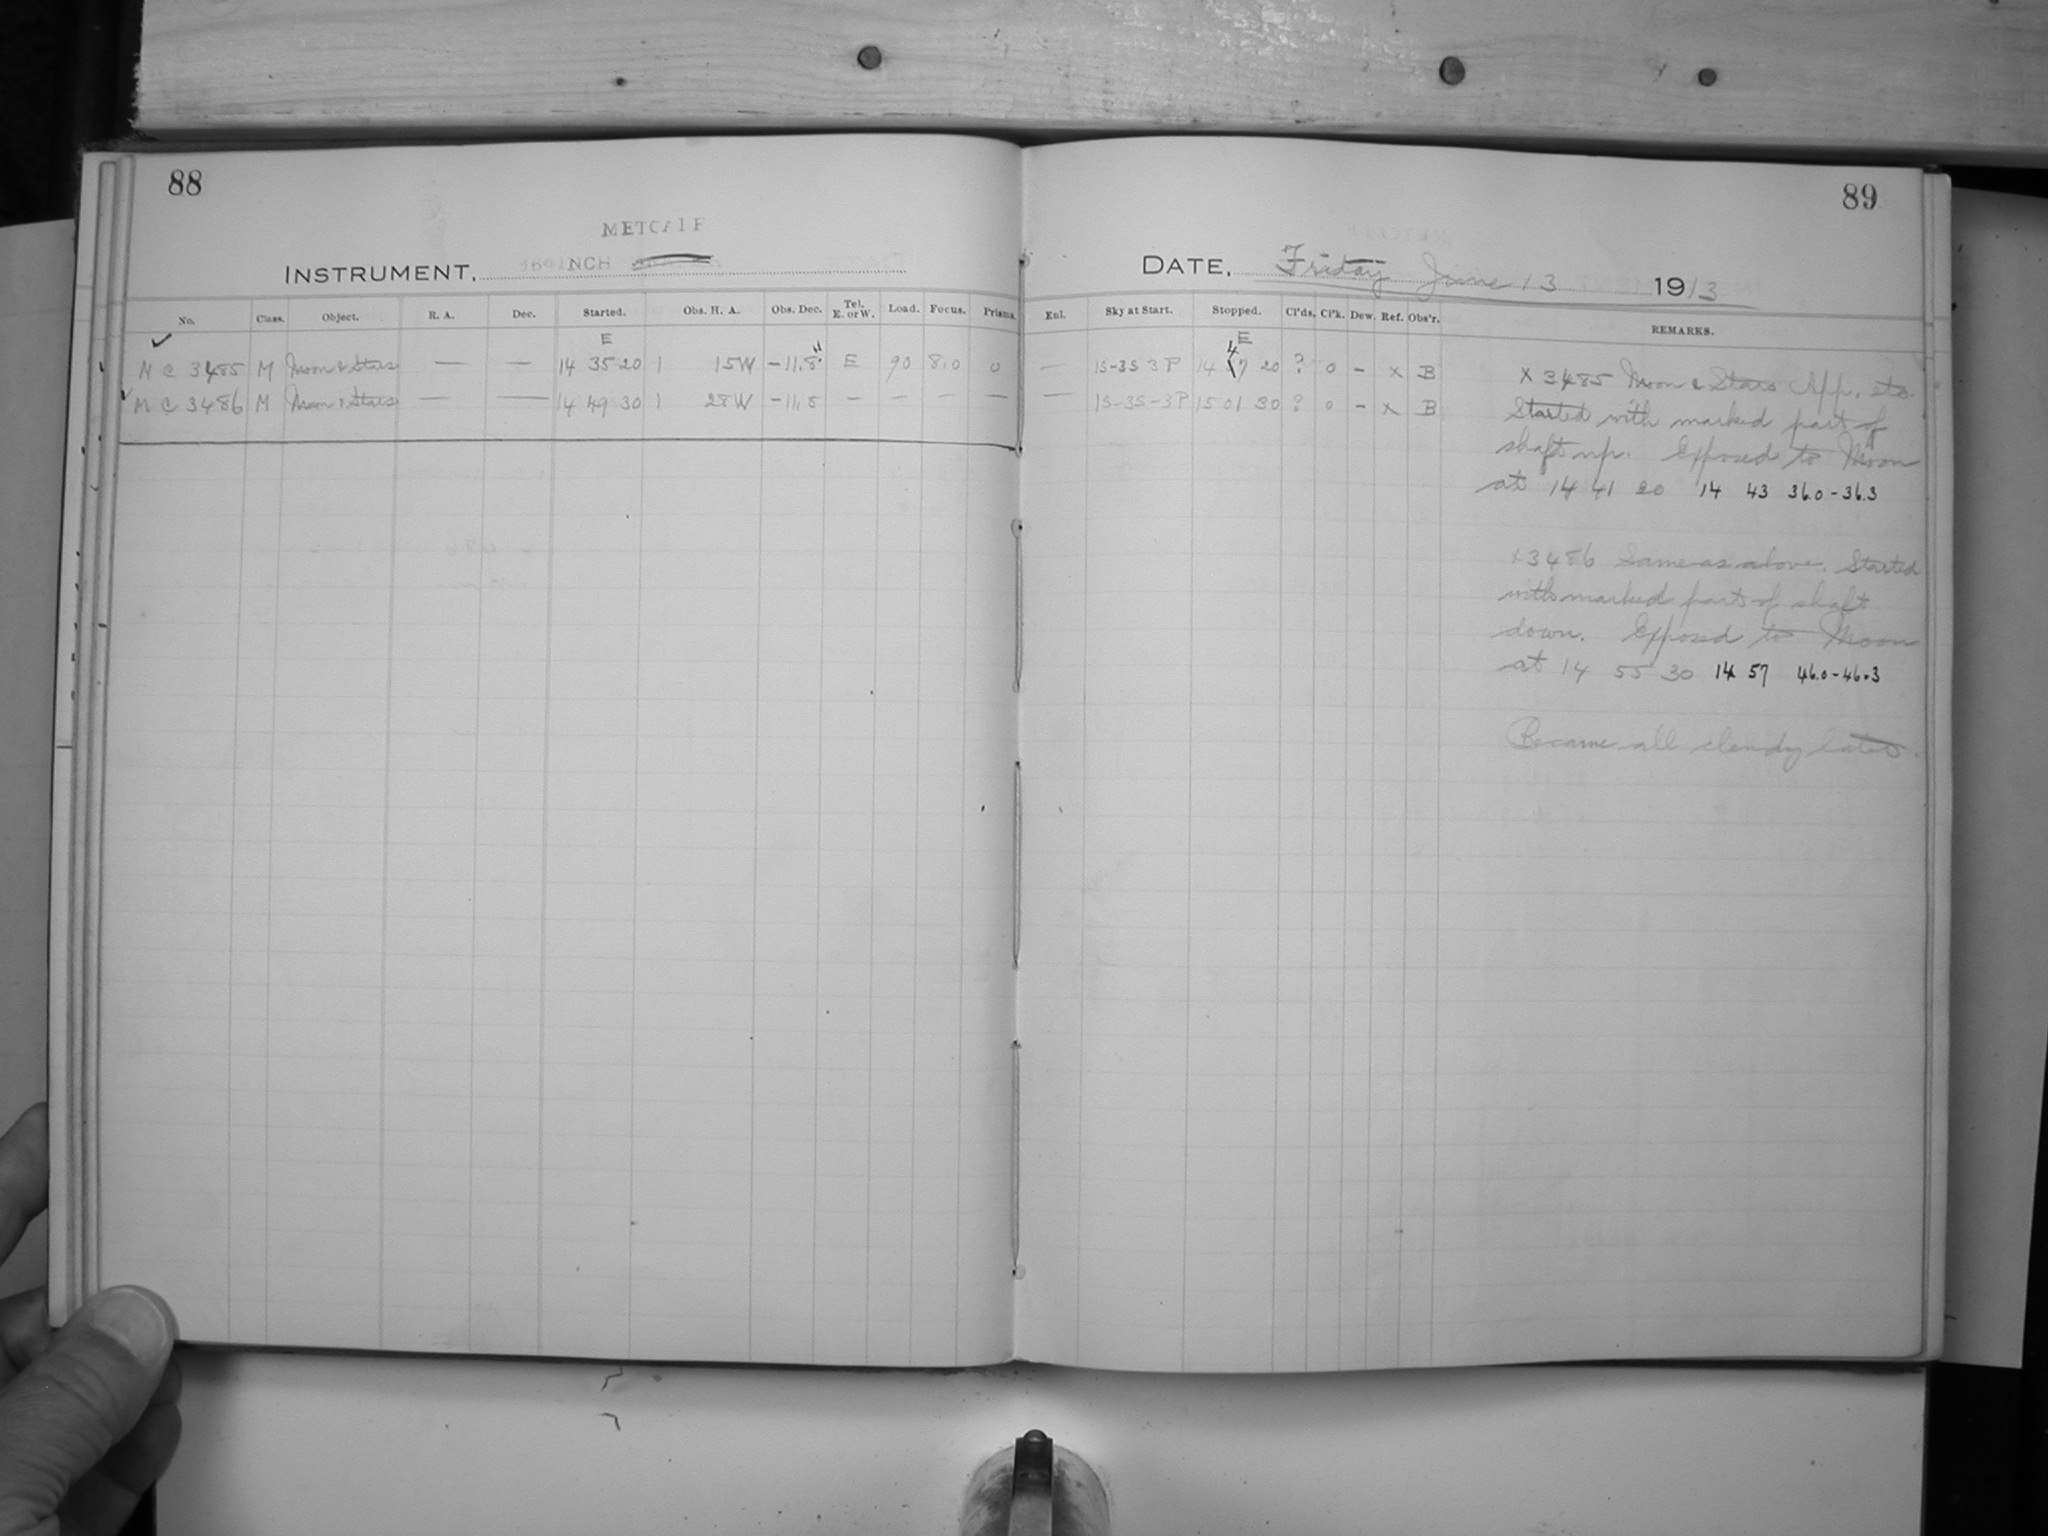 88
METCALF
INSTRUMENT, 16 INCH
No. Class. Object. R. A. Dec. Started. Obs. H. A. Obs. Dec. Tel. E. or W. Load. Focus. Prisms.
E
M C 3485 M Moon & Stars — — 14 35 20 1 15 W -11.8 E 90 8.0 0
M C 3486 M Moon & Stars — — 14 49 30 1 28 W -11.8 — — — —
89
DATE, Friday June 13 1913
Enl. Sky at Start. Stopped. Cl'ds, Cl'k. Dew. Ref. Obs'r. REMARKS.
E
— 1S-3S 3P 14 47 20 ? 0 - x B
— 1S-3S-3P 15 01 30 ? 0 - x B
x 3485 Moon & Stars App. etc.
Started with marked part of
shaft up. Exposed to Moon
at 14 41 20 14 43 36.0-36.3
x 3486 Same as above. Started
with marked part of shaft
down. Exposed to Moon
at 14 55 30 14 57 46.0-46.3
Became all cloudy later.